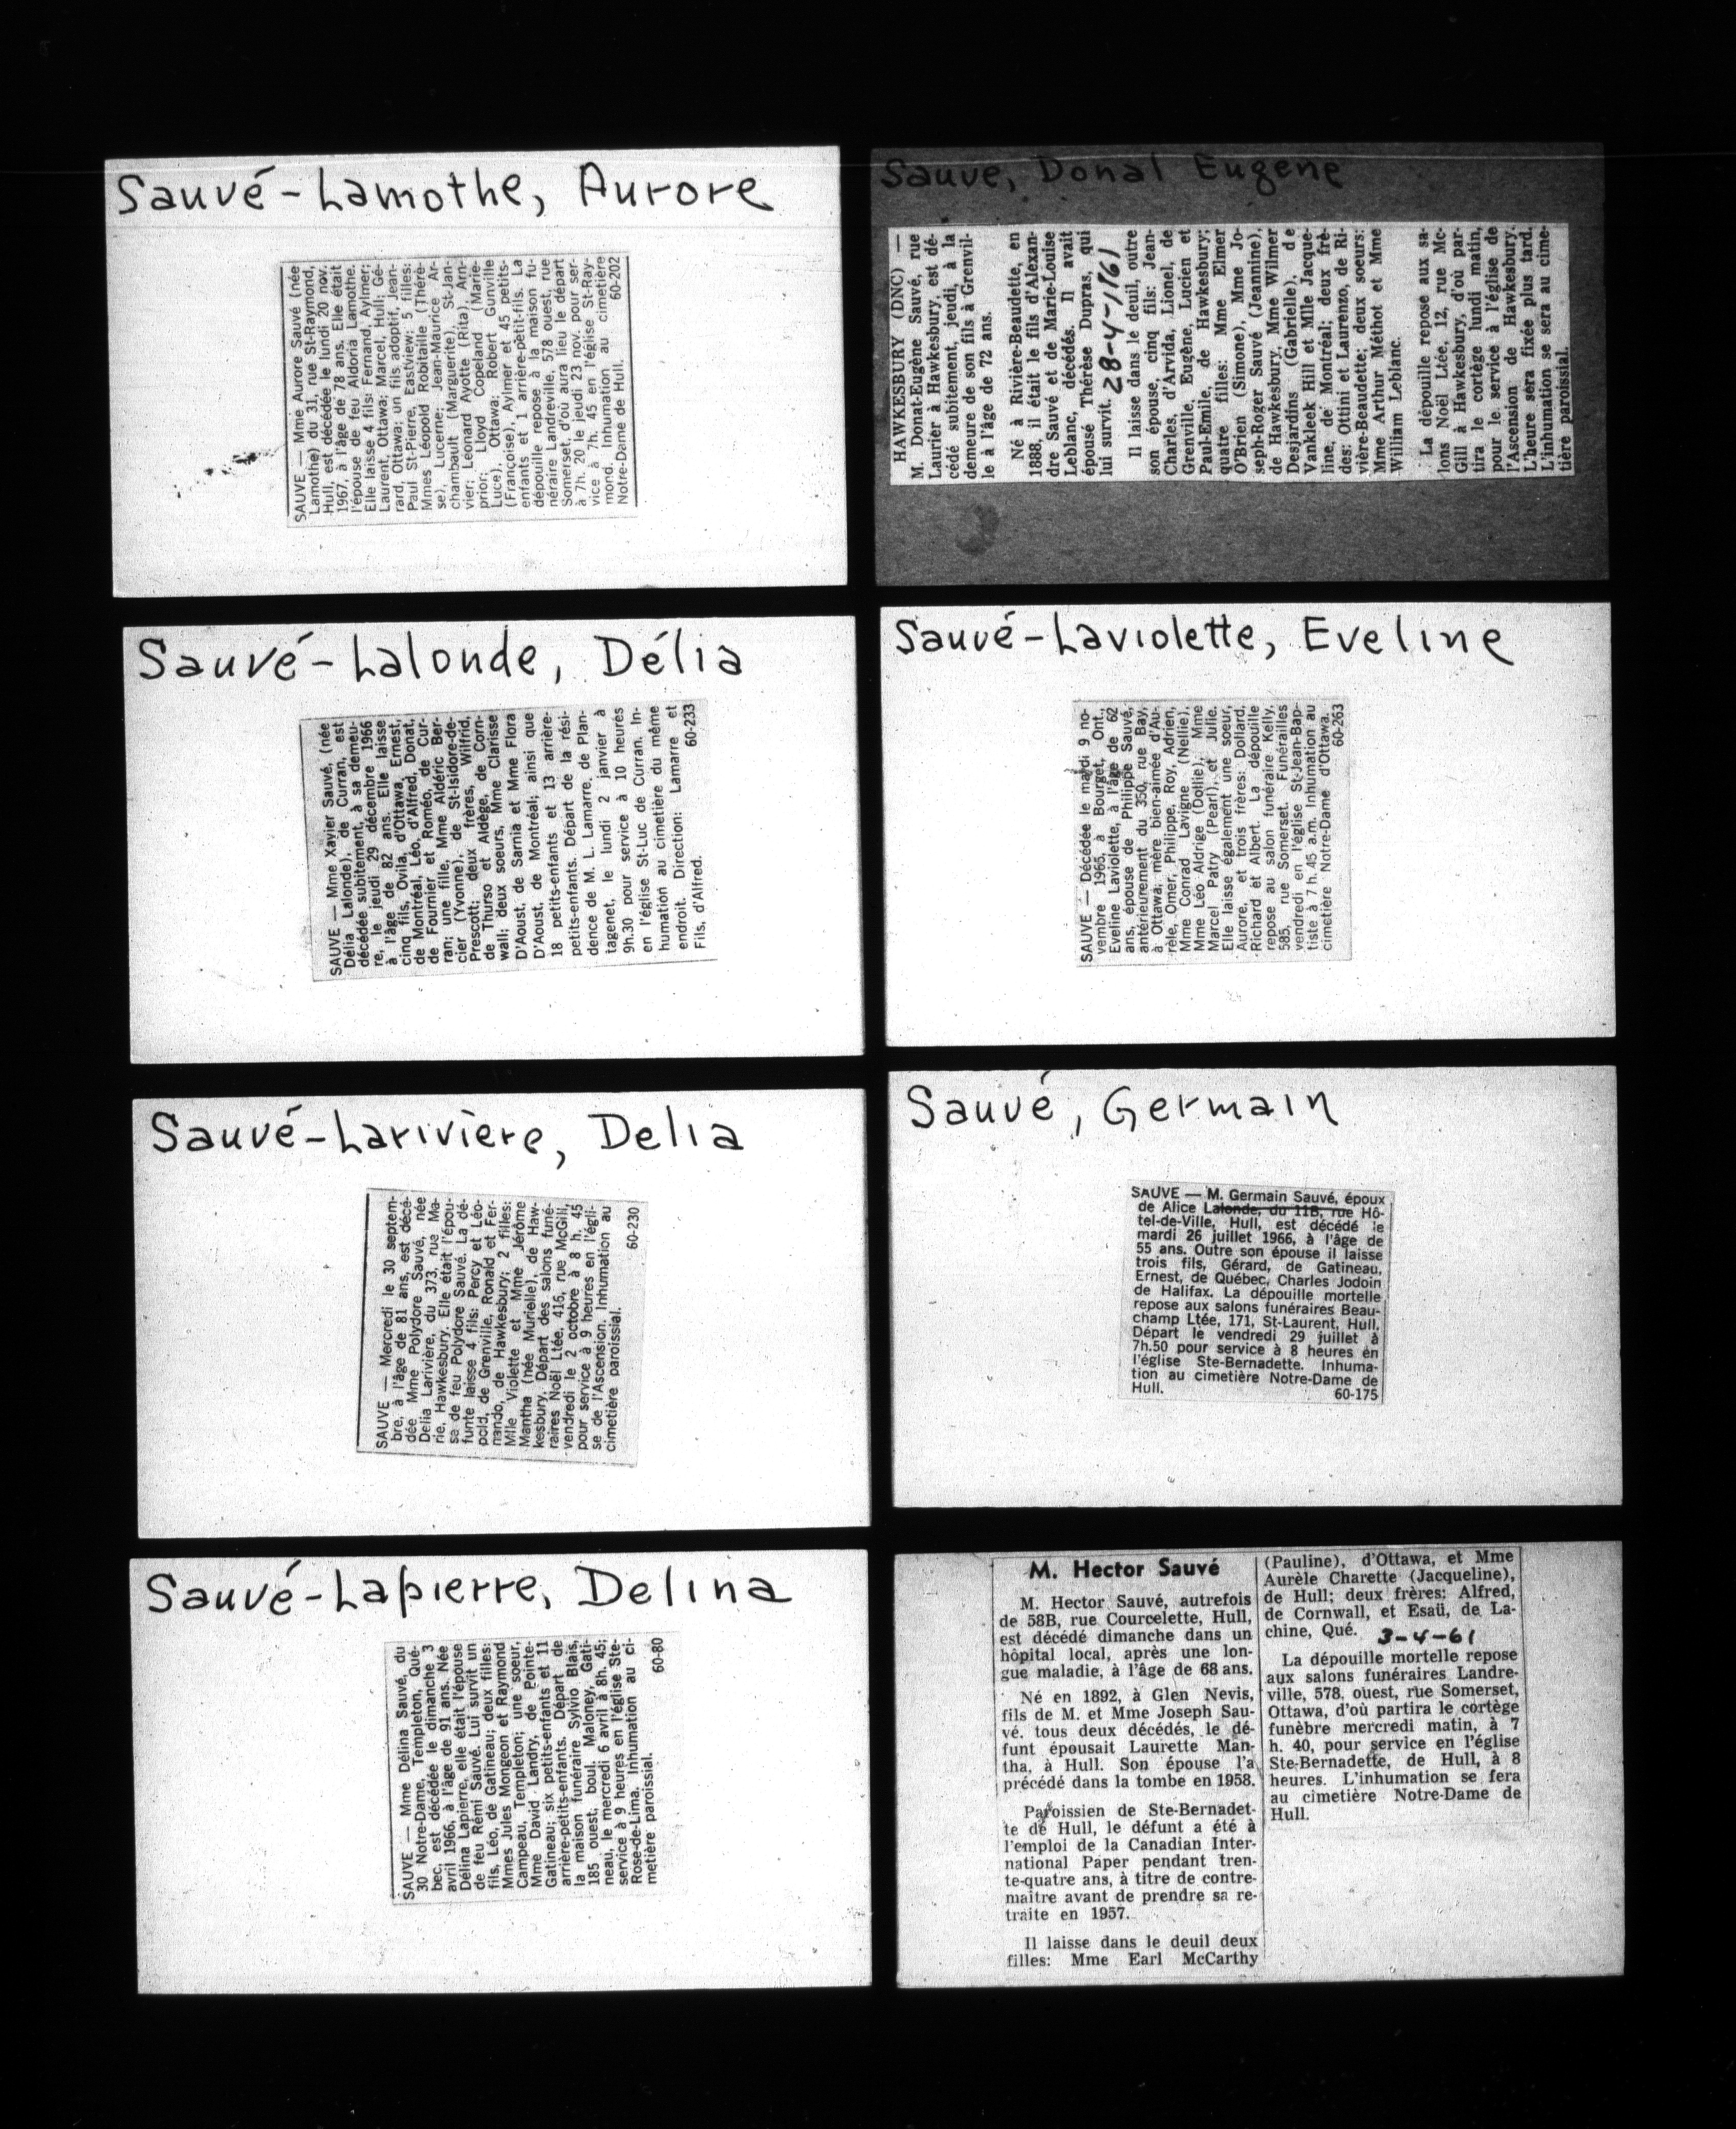 Sauvé-Lamothe, Aurore
SAUVE — Mme Aurore Sauvé (née
Lamothe) du 31, rue St-Raymond,
Hull, est décédée le lundi 20 nov.
1967, à l'âge de 78 ans. Elle était
l'épouse de feu Aldoria Lamothe.
Elle laisse 4 fils: Fernand, Aylmer;
Laurent, Ottawa; Marcel, Hull; Gé-
rard, Ottawa; un fils adoptif, Jean-
Paul St-Pierre, Eastview; 5 filles:
Mmes Léopold Robitaille (Thérè-
se), Lucerne; Jean-Maurice Ar-
chambault (Marguerite), St-Jan-
vier; Léonard Ayotte (Rita), Arn-
prior; Lloyd Copeland (Marie-
Luce), Ottawa; Robert Gunville
(Françoise), Aylmer et 45 petits-
enfants et 1 arrière-petit-fils. La
dépouille repose à la maison fu-
néraire Landreville, 578 ouest, rue
Somerset, d'où aura lieu le départ
à 7h. 20 le jeudi 23 nov. pour ser-
vice à 7h. 45 en l'église St-Ray-
mond. Inhumation au cimetière
Notre-Dame de Hull.
60-202
Sauve, Donal Eugene
HAWKESBURY (DNC) —
M. Donat-Eugène Sauvé, rue
Laurier à Hawkesbury, est dé-
cédé subitement, jeudi, à la
demeure de son fils à Grenvil-
le à l'âge de 72 ans.
Né à Rivière-Beaudette, en
1888, il était le fils d'Alexan-
dre Sauvé et de Marie-Louise
Leblanc, décédés. Il avait
épousé Thérèse Dupras, qui
lui survit. 28-4-1961
Il laisse dans le deuil, outre
son épouse, cinq fils: Jean-
Charles, d'Arvida, Lionel, de
Grenville, Eugène, Lucien et
Paul-Emile, de Hawkesbury;
quatre filles: Mme Elmer
O'Brien (Simone), Mme Jo-
seph-Roger Sauvé (Jeannine),
de Hawkesbury, Mme Wilmer
Desjardins (Gabrielle), de
Vankleek Hill et Mlle Jacque-
line, de Montréal; deux frè-
des: Ottini et Laurenzo, de Ri-
vière-Beaucadette; deux soeurs:
Mme Arthur Méthot et Mme
William Leblanc.
La dépouille repose aux sa-
lons Noël Ltée, 12, rue Mc-
Gill à Hawkesbury, d'où par-
tira le cortège lundi matin,
pour le service à l'église de
l'Ascension de Hawkesbury.
L'heure sera fixée plus tard.
L'inhumation se sera au cime-
tière paroissial.
Sauvé-Lalonde, Délia
SAUVE — Mme Xavier Sauvé, (née
Délia Lalonde), de Curran, est
décédée subitement, à sa demeu-
re, le jeudi 29 décembre 1966
à l'âge de 82 ans. Elle laisse
cinq fils, Ovila, d'Ottawa, Ernest,
de Montréal, Léo, d'Alfred, Donat,
de Fournier et Roméo, de Cur-
ran; une fille, Mme Aldéric Ber-
cier (Yvonne), de St-Isidore-de-
Prescott; deux frères, Wilfrid,
de Thurso et Aldège, de Corn-
wall; deux soeurs, Mme Clarisse
D'Aoust, de Sarnia et Mme Flora
D'Aoust, de Montréal; ainsi que
18 petits-enfants et 13 arrière-
petits-enfants. Départ de la rési-
dence de M. L. Lamarre, de Plan-
tagenet, le lundi 2 janvier à
9h.30 pour service à 10 heures
en l'église St-Luc de Curran. In-
humation au cimetière du même
endroit. Direction: Lamarre et
Fils, d'Alfred.
60-233
Sauvé-Laviolette, Eveline
SAUVE — Décédée le mardi 9 no-
vembre 1965, à Bourget, Ont.,
Eveline Laviolette, à l'âge de 62
ans, épouse de Philippe Sauvé,
antérieurement du 350, rue Bay,
à Ottawa; mère bien-aimée d'Au-
rèle, Omer, Philippe, Roy, Adrien,
Mme Conrad Lavigne (Nellie),
Mme Léo Aldrige (Dollie), Mme
Marcel Patry (Pearl), et Julie.
Elle laisse également une soeur,
Aurore, et trois frères: Dollard,
Richard et Albert. La dépouille
repose au salon funéraire Kelly,
585, rue Somerset. Funérailles
vendredi en l'église St-Jean-Bap-
tiste à 7 h. 45 a.m. Inhumation au
cimetière Notre-Dame d'Ottawa.
60-263
Sauvé-Larivière, Delia
SAUVE — Mercredi le 30 septem-
bre, à l'âge de 81 ans, est décé-
dée Mme Polydore Sauvé, née
Delia Larivière, du 373, rue Ma-
rie, Hawkesbury. Elle était l'épou-
se de feu Polydore Sauvé. La dé-
funte laisse 4 fils: Percy et Léo-
pold, de Grenville, Ronald et Fer-
nando, de Hawkesbury; 2 filles:
Mlle Violette et Mme Jérôme
Mantha (née Murielle), de Haw-
kesbury. Départ des salons funé-
raires Noël Ltée, 416, rue McGill,
vendredi le 2 octobre à 8 h. 45
pour service à 9 heures en l'égli-
se de l'Ascension. Inhumation au
cimetière paroissial.
60-230
Sauvé, Germain
SAUVE — M. Germain Sauvé, époux
de Alice Lalonde, du 11B, rue Hô-
tel-de-Ville, Hull, est décédé le
mardi 26 juillet 1966, à l'âge de
55 ans. Outre son épouse il laisse
trois fils, Gérard, de Gatineau,
Ernest, de Québec, Charles Jodoin
de Halifax. La dépouille mortelle
repose aux salons funéraires Beau-
champ Ltée, 171, St-Laurent, Hull.
Départ le vendredi 29 juillet à
7h.50 pour service à 8 heures en
l'église Ste-Bernadette. Inhuma-
tion au cimetière Notre-Dame de
Hull.
60-175
Sauvé-Lapierre, Delina
SAUVE — Mme Délina Sauvé, du
30 Notre-Dame, Templeton, Qué-
bec, est décédée le dimanche 3
avril 1966, à l'âge de 91 ans. Née
Délina Lapierre, elle était l'épouse
de feu Rémi Sauvé. Lui survit un
fils, Léo, de Gatineau; deux filles:
Mmes Jules Mongeon et Raymond
Campeau, Templeton; une soeur,
Mme David Landry, de Pointe-
Gatineau; six petits-enfants et 11
arrière-petits-enfants. Départ de
la maison funéraire Sylvio Blais,
185 ouest, boul. Maloney, Gati-
neau, le mercredi 6 avril à 8h. 45;
service à 9 heures en l'église Ste-
Rose-de-Lima. Inhumation au ci-
metière paroissial.
60-80
M. Hector Sauvé
M. Hector Sauvé, autrefois
de 58B, rue Courcelette, Hull,
est décédé dimanche dans un
hôpital local, après une lon-
gue maladie, à l'âge de 68 ans.
Né en 1892, à Glen Nevis,
fils de M. et Mme Joseph Sau-
vé, tous deux décédés, le dé-
funt épousait Laurette Man-
tha, à Hull. Son épouse l'a
précédé dans la tombe en 1958.
Paroissien de Ste-Bernadet-
te de Hull, le défunt a été à
l'emploi de la Canadian Inter-
national Paper pendant tren-
te-quatre ans, à titre de contre-
maître avant de prendre sa re-
traite en 1957.
Il laisse dans le deuil deux
filles: Mme Earl McCarthy
(Pauline), d'Ottawa, et Mme
Aurèle Charette (Jacqueline),
de Hull; deux frères: Alfred,
de Cornwall, et Esaü, de La-
chine, Qué. 3-4-61
La dépouille mortelle repose
aux salons funéraires Landre-
ville, 578, ouest, rue Somerset,
Ottawa, d'où partira le cortège
funèbre mercredi matin, à 7
h. 40, pour service en l'église
Ste-Bernadette, de Hull, à 8
heures. L'inhumation se fera
au cimetière Notre-Dame de
Hull.